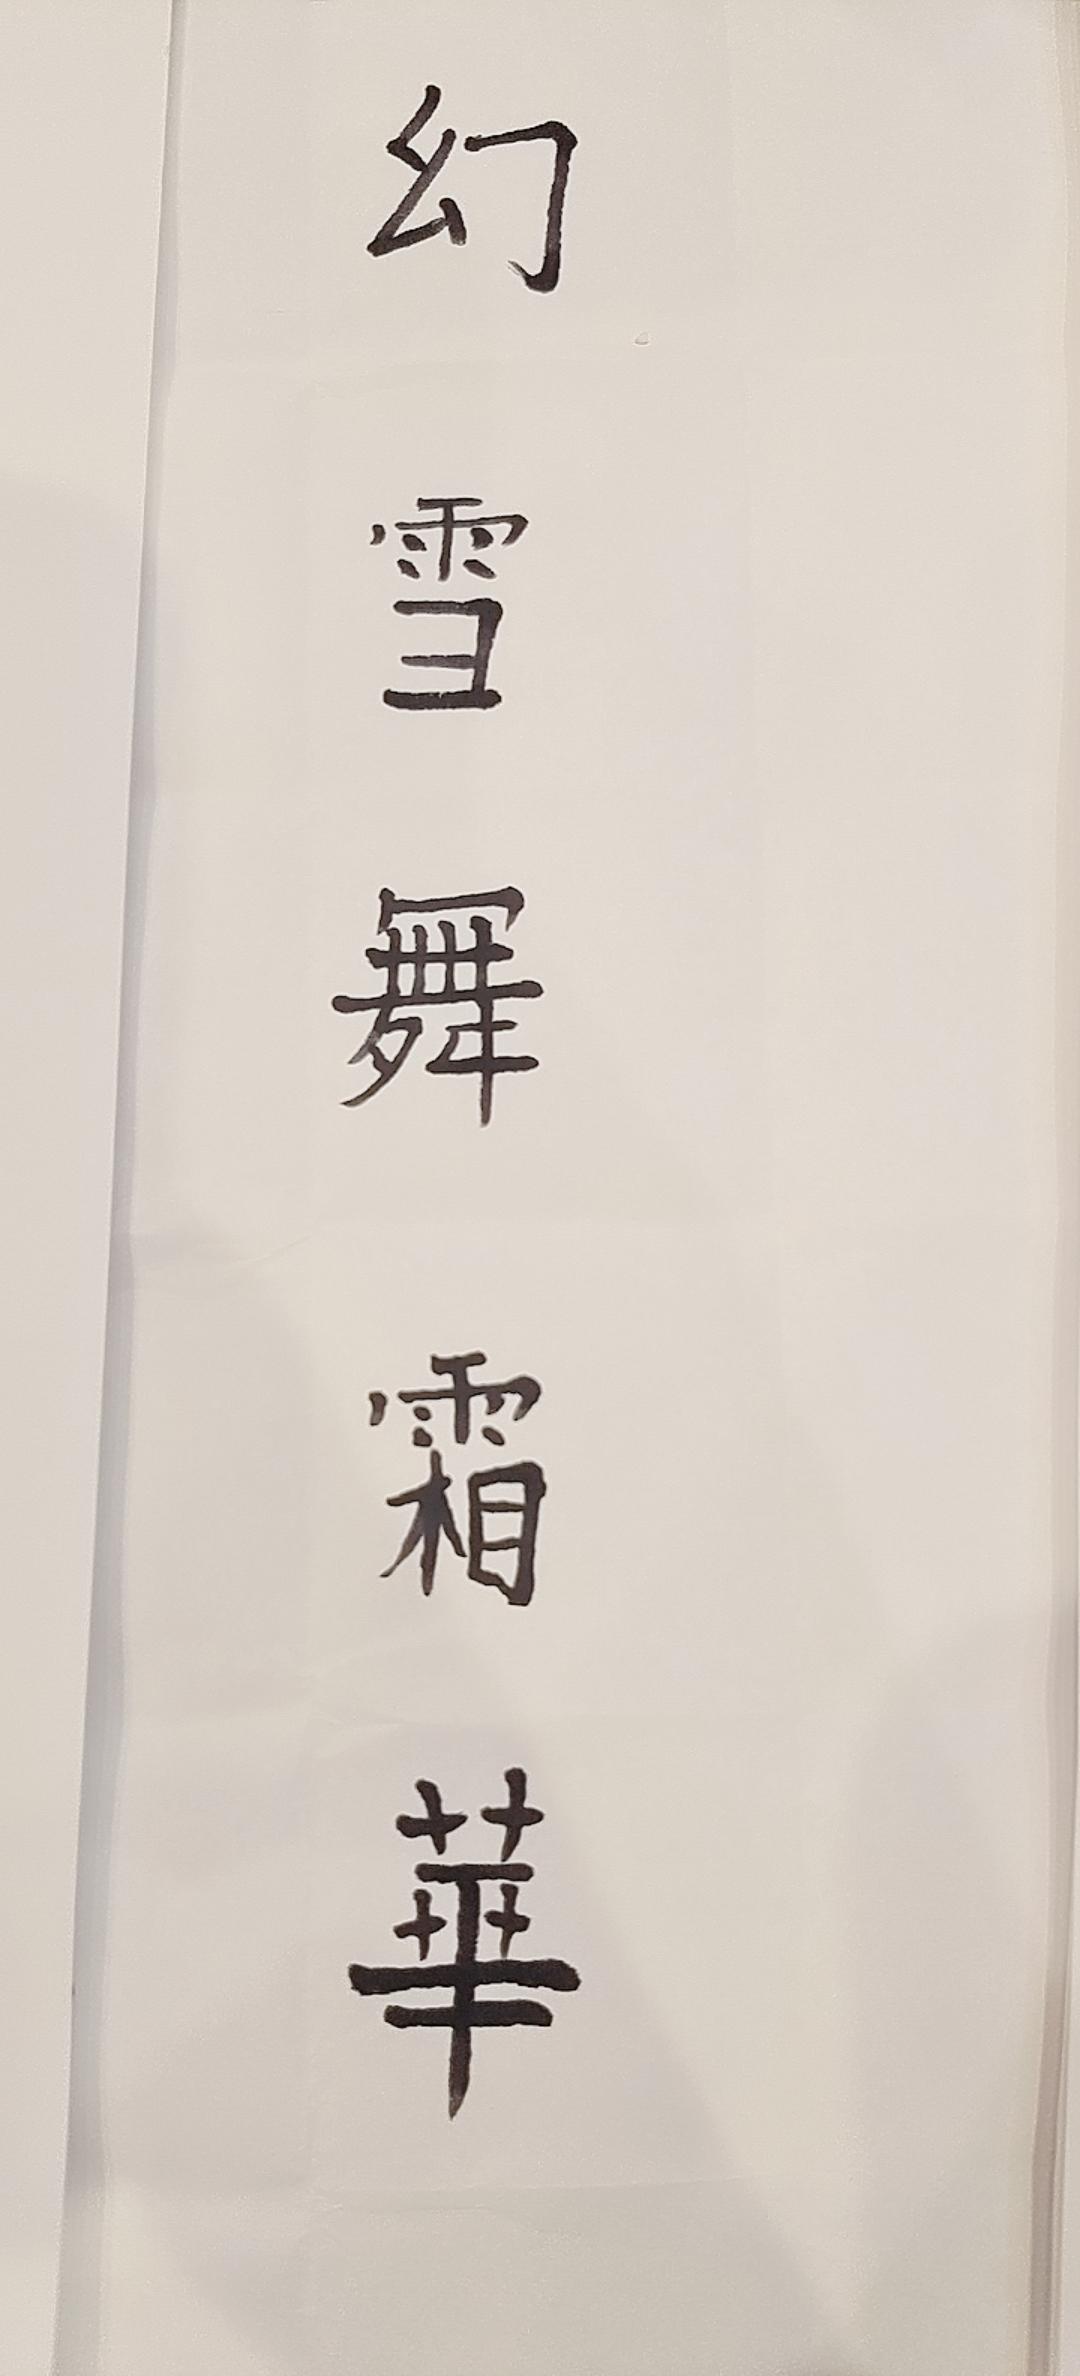 幻雪舞霜華